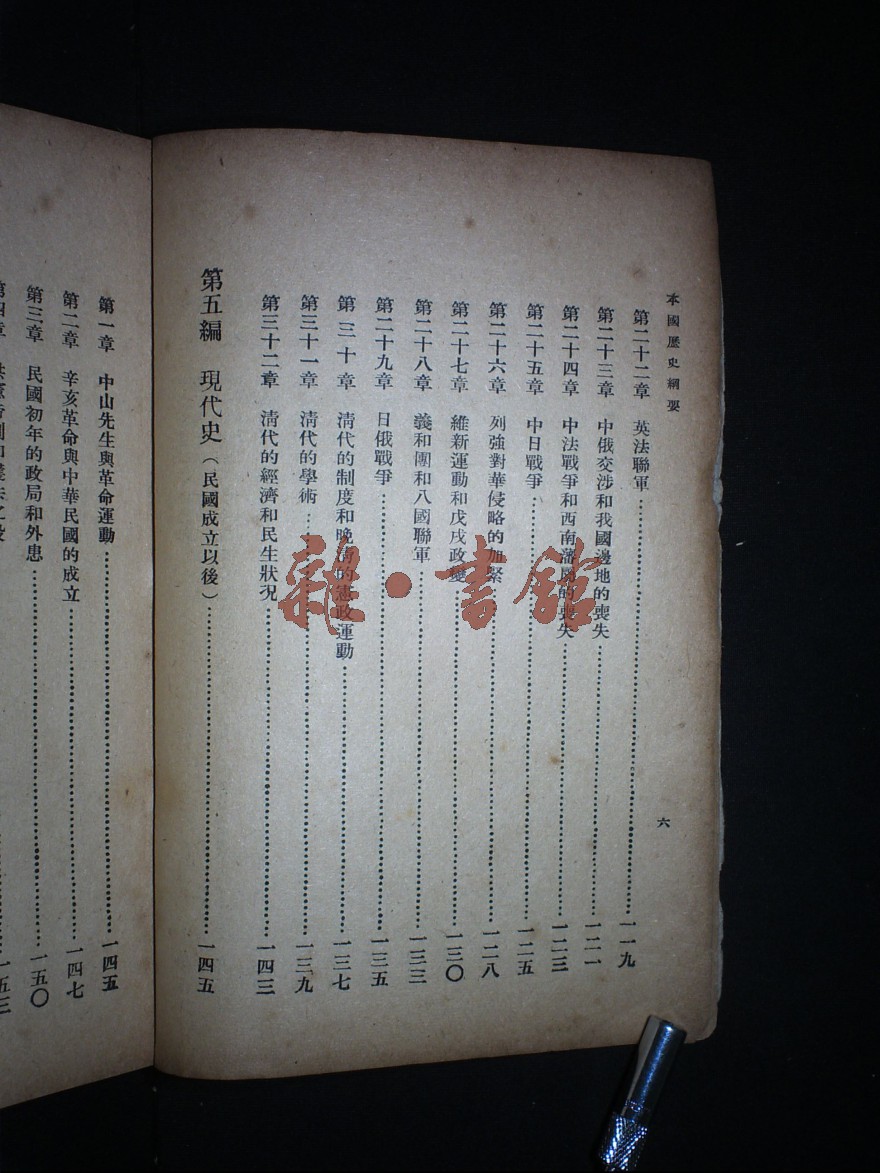 本國歷史綱要
六
第二十二章 英法聯軍……一一九
第二十三章 中俄交涉和我國邊地的喪失……一二一
第二十四章 中法戰爭和西南藩屬的喪失……一二三
第二十五章 中日戰爭……一二五
第二十六章 列強對華侵略的加緊……一二八
第二十七章 維新運動和戊戌政變……一三〇
第二十八章 義和團和八國聯軍……一三三
第二十九章 日俄戰爭……一三五
第三十章 清代的制度和晚清的憲政運動……一三七
第三十一章 清代的學術……一三九
第三十二章 清代的經濟和民生狀況……一四三
第五編 現代史(民國成立以後)……一四五
第一章 中山先生與革命運動……一四五
第二章 辛亥革命與中華民國的成立……一四七
第三章 民國初年的政局和外患……一五〇
第四章……一五三
雜·書館